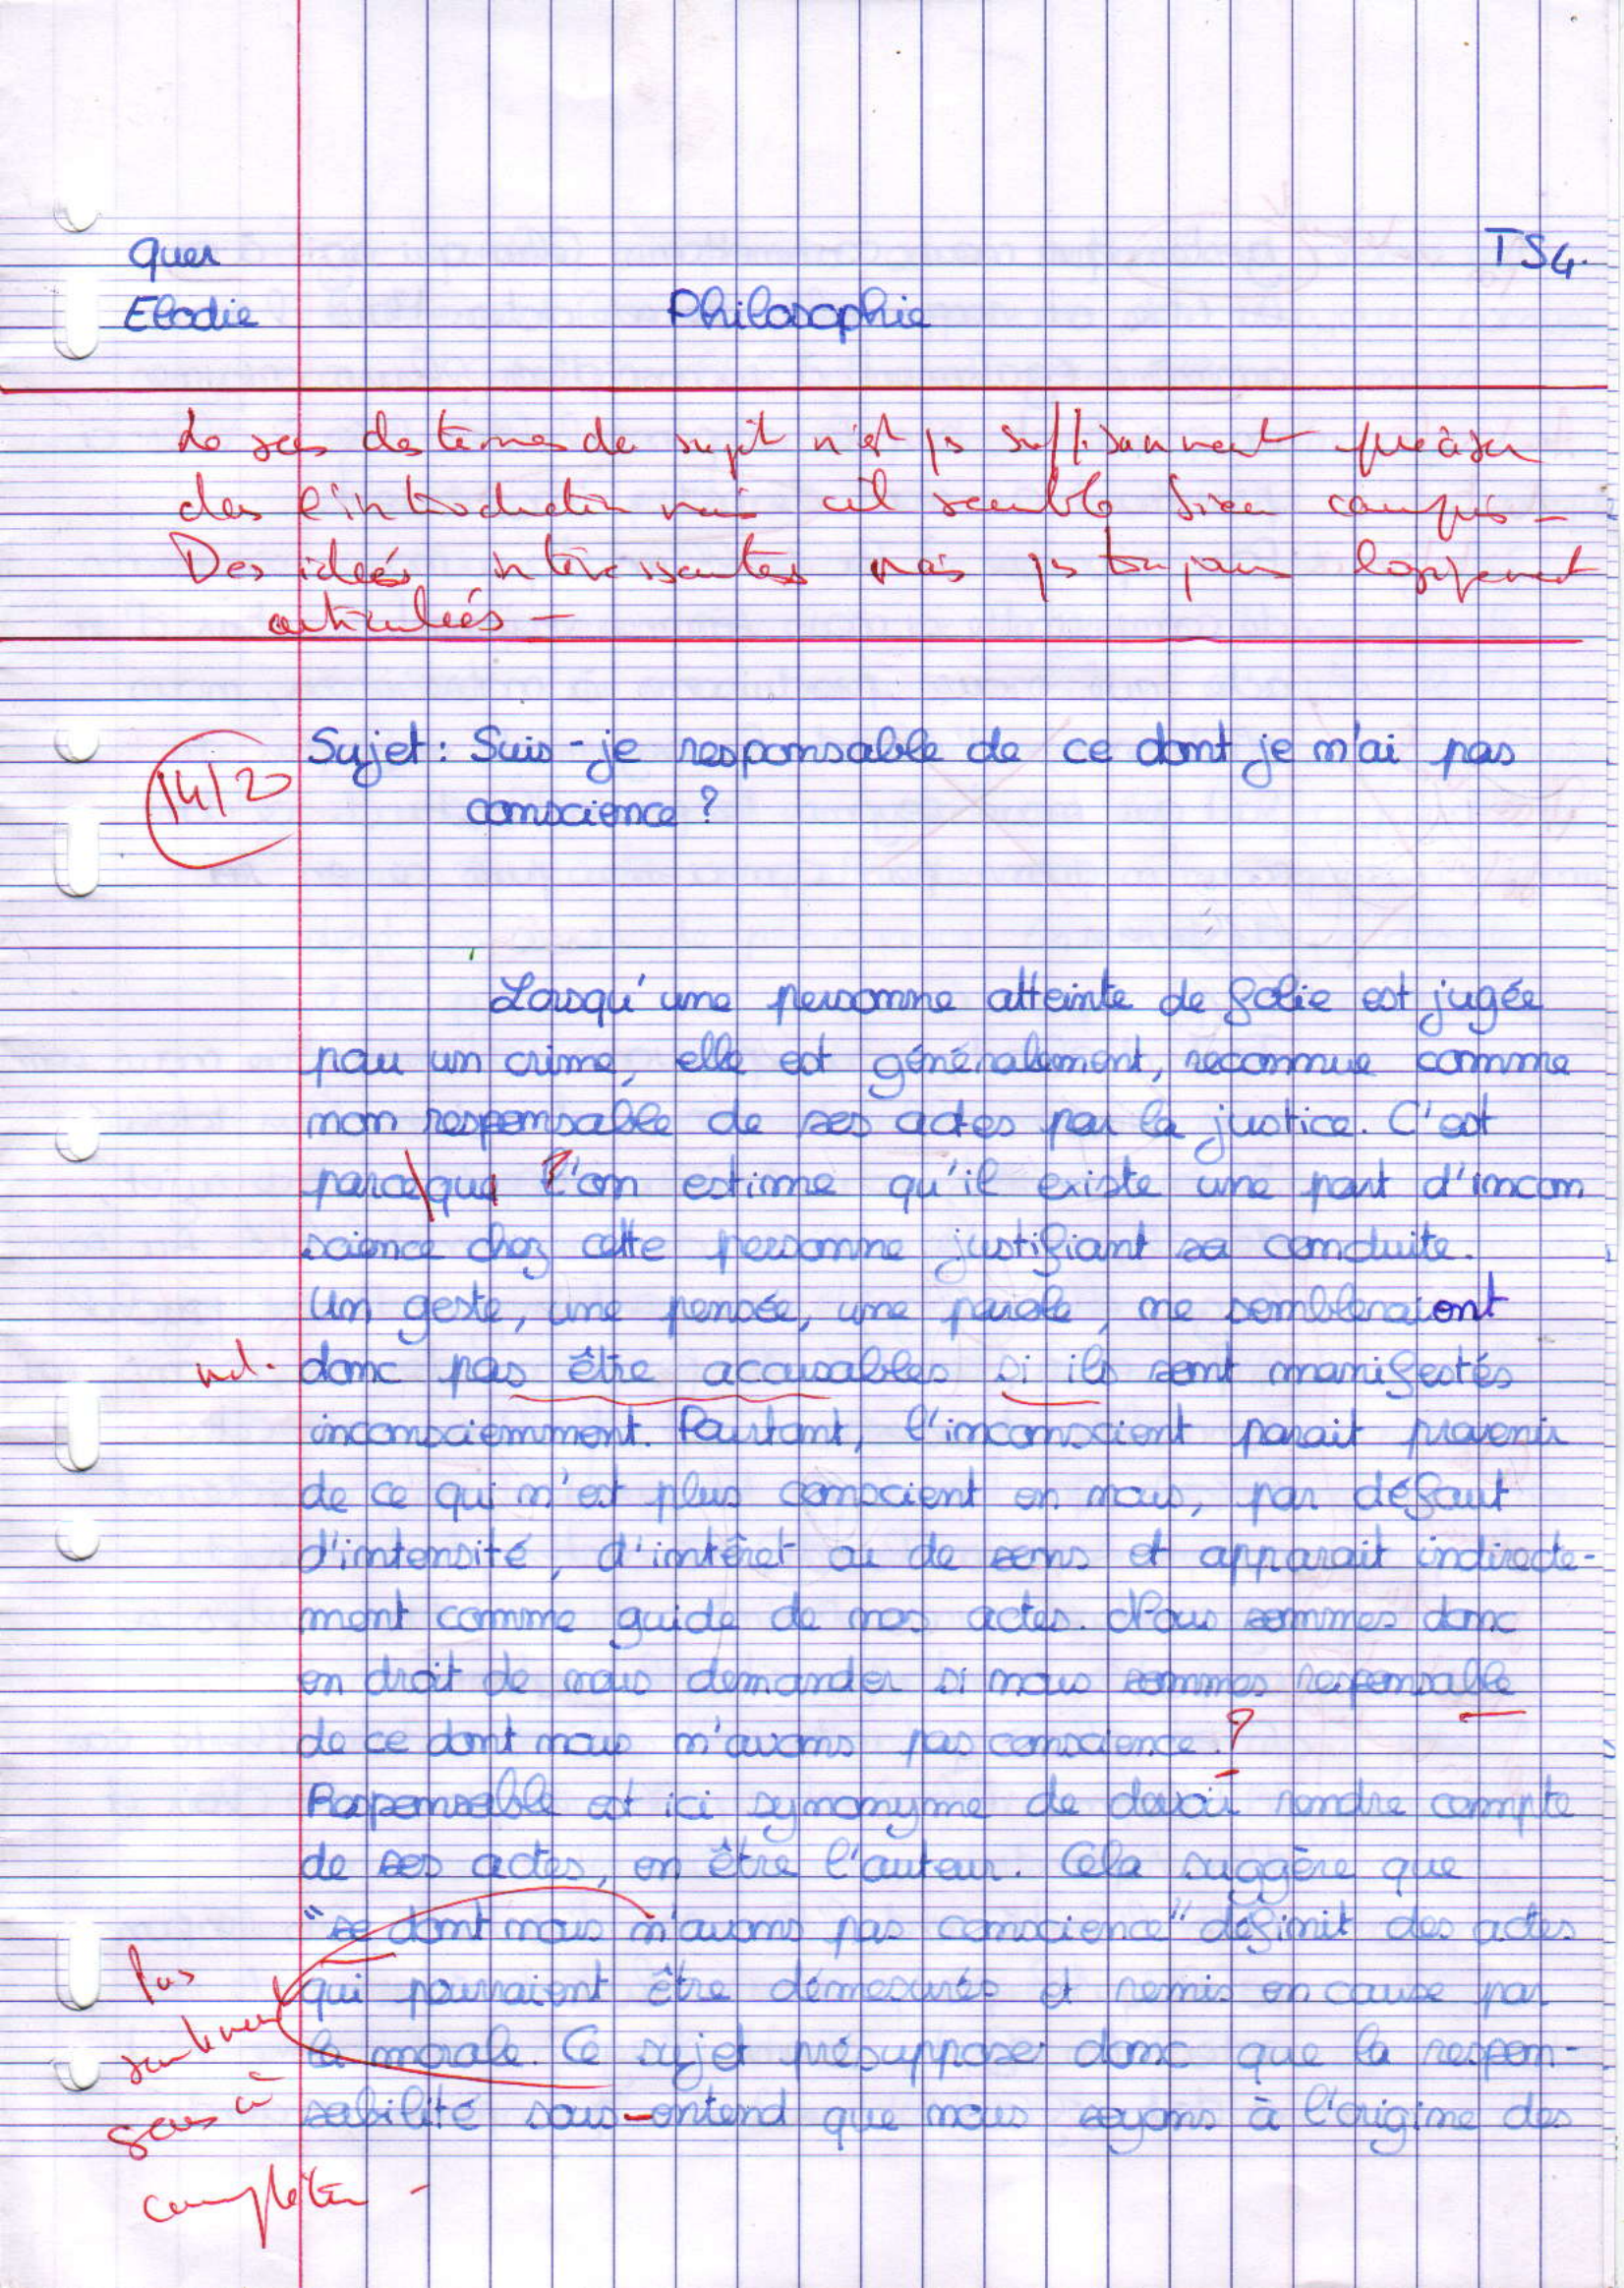 Quer
TS4.
Elodie
Philosophie
Le sens des termes du sujet n'est ps suffisamment préciser
dans l'introduction mais cel semble bien compris -
Des ideés intéressantes mais ps toujours logiquement
articuleés -
14/20
Sujet : Suis-je responsable de ce dont je n'ai pas
conscience ?
Lorsqu'une personne atteinte de folie est jugée
pour un crime, elle est généralement, reconnue comme
non responsable de ses actes par la justice. C'est
parce que l'on estime qu'il existe une part d'incon
science chez cette personne justifiant sa conduite.
Un geste, une pensée, une parole, ne sembleraient
md. donc pas être accusables si ils sont manifestés
inconsciemment. Pourtant, l'inconscient parait provenir
de ce qui n'est plus conscient en nous, par défaut
d'intensité, d'intêret ou de sens et apparait indirecte-
ment comme guide de nos actes. Nous sommes donc
en droit de nous demander si nous sommes responsable
de ce dont nous n'avons pas conscience. ?
Responsable est ici synonyme de devoir rendre compte
de ses actes, en être l'auteur. Cela suggère que
"se dont nous n'avons pas conscience" définit des actes
qui pourraient être démesurés et remis en cause par
la morale. Ce sujet présuppose donc que la respon-
sabilité sous-entend que nous soyons à l'origine des
Pas
seulement
sens à
compléter -